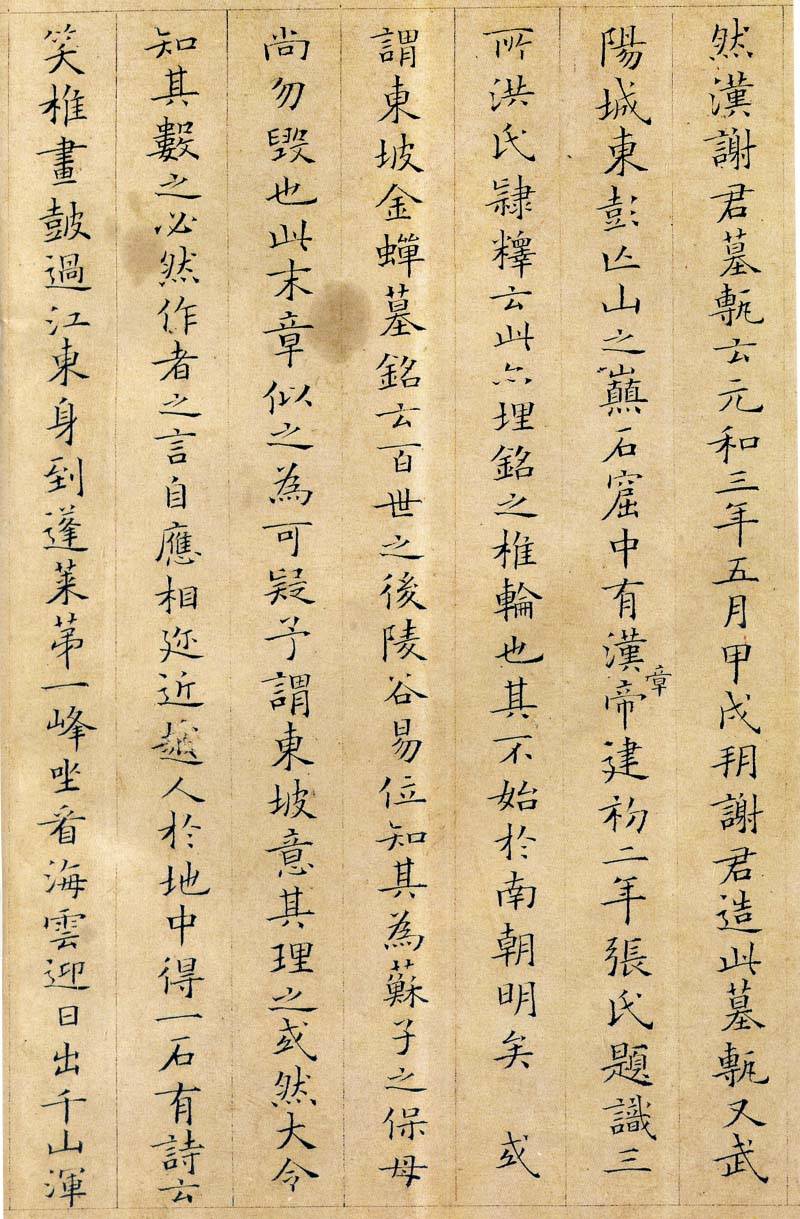 然漢謝君墓甎云元和三年五月甲戌朔謝君造此墓甎又武
陽城東彭亾山之巓石窟中有漢章帝建初二年張氏題識三
所洪氏隷釋云此亦埋銘之椎輪也其不始於南朝明矣 或
謂東坡金蟬墓銘云百世之後陵谷易位知其為蘇子之保母
尚勿毀也此末章似之為可疑予謂東坡意其理之或然大令
知其數之必然作者之言自應相迩近越人於地中得一石有詩云
笑椎畫皷過江東身到蓬萊苐一峰坐看海雲迎日出千山渾